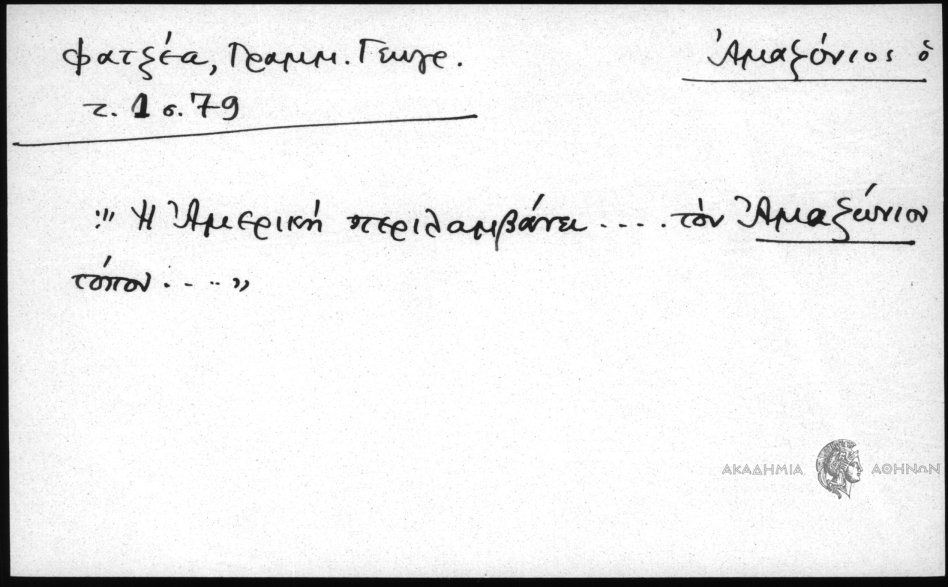 Φατζέα, Γραμμ. Γεωγρ.
τ. 1 σ. 79
Ἀμαζόνιος ὁ
"Ἡ Ἀμερικὴ περιλαμβάνει .... τὸν Ἀμαζώνιον
τόπον ....."
ΑΚΑΔΗΜΙΑ ΑΘΗΝΩΝ